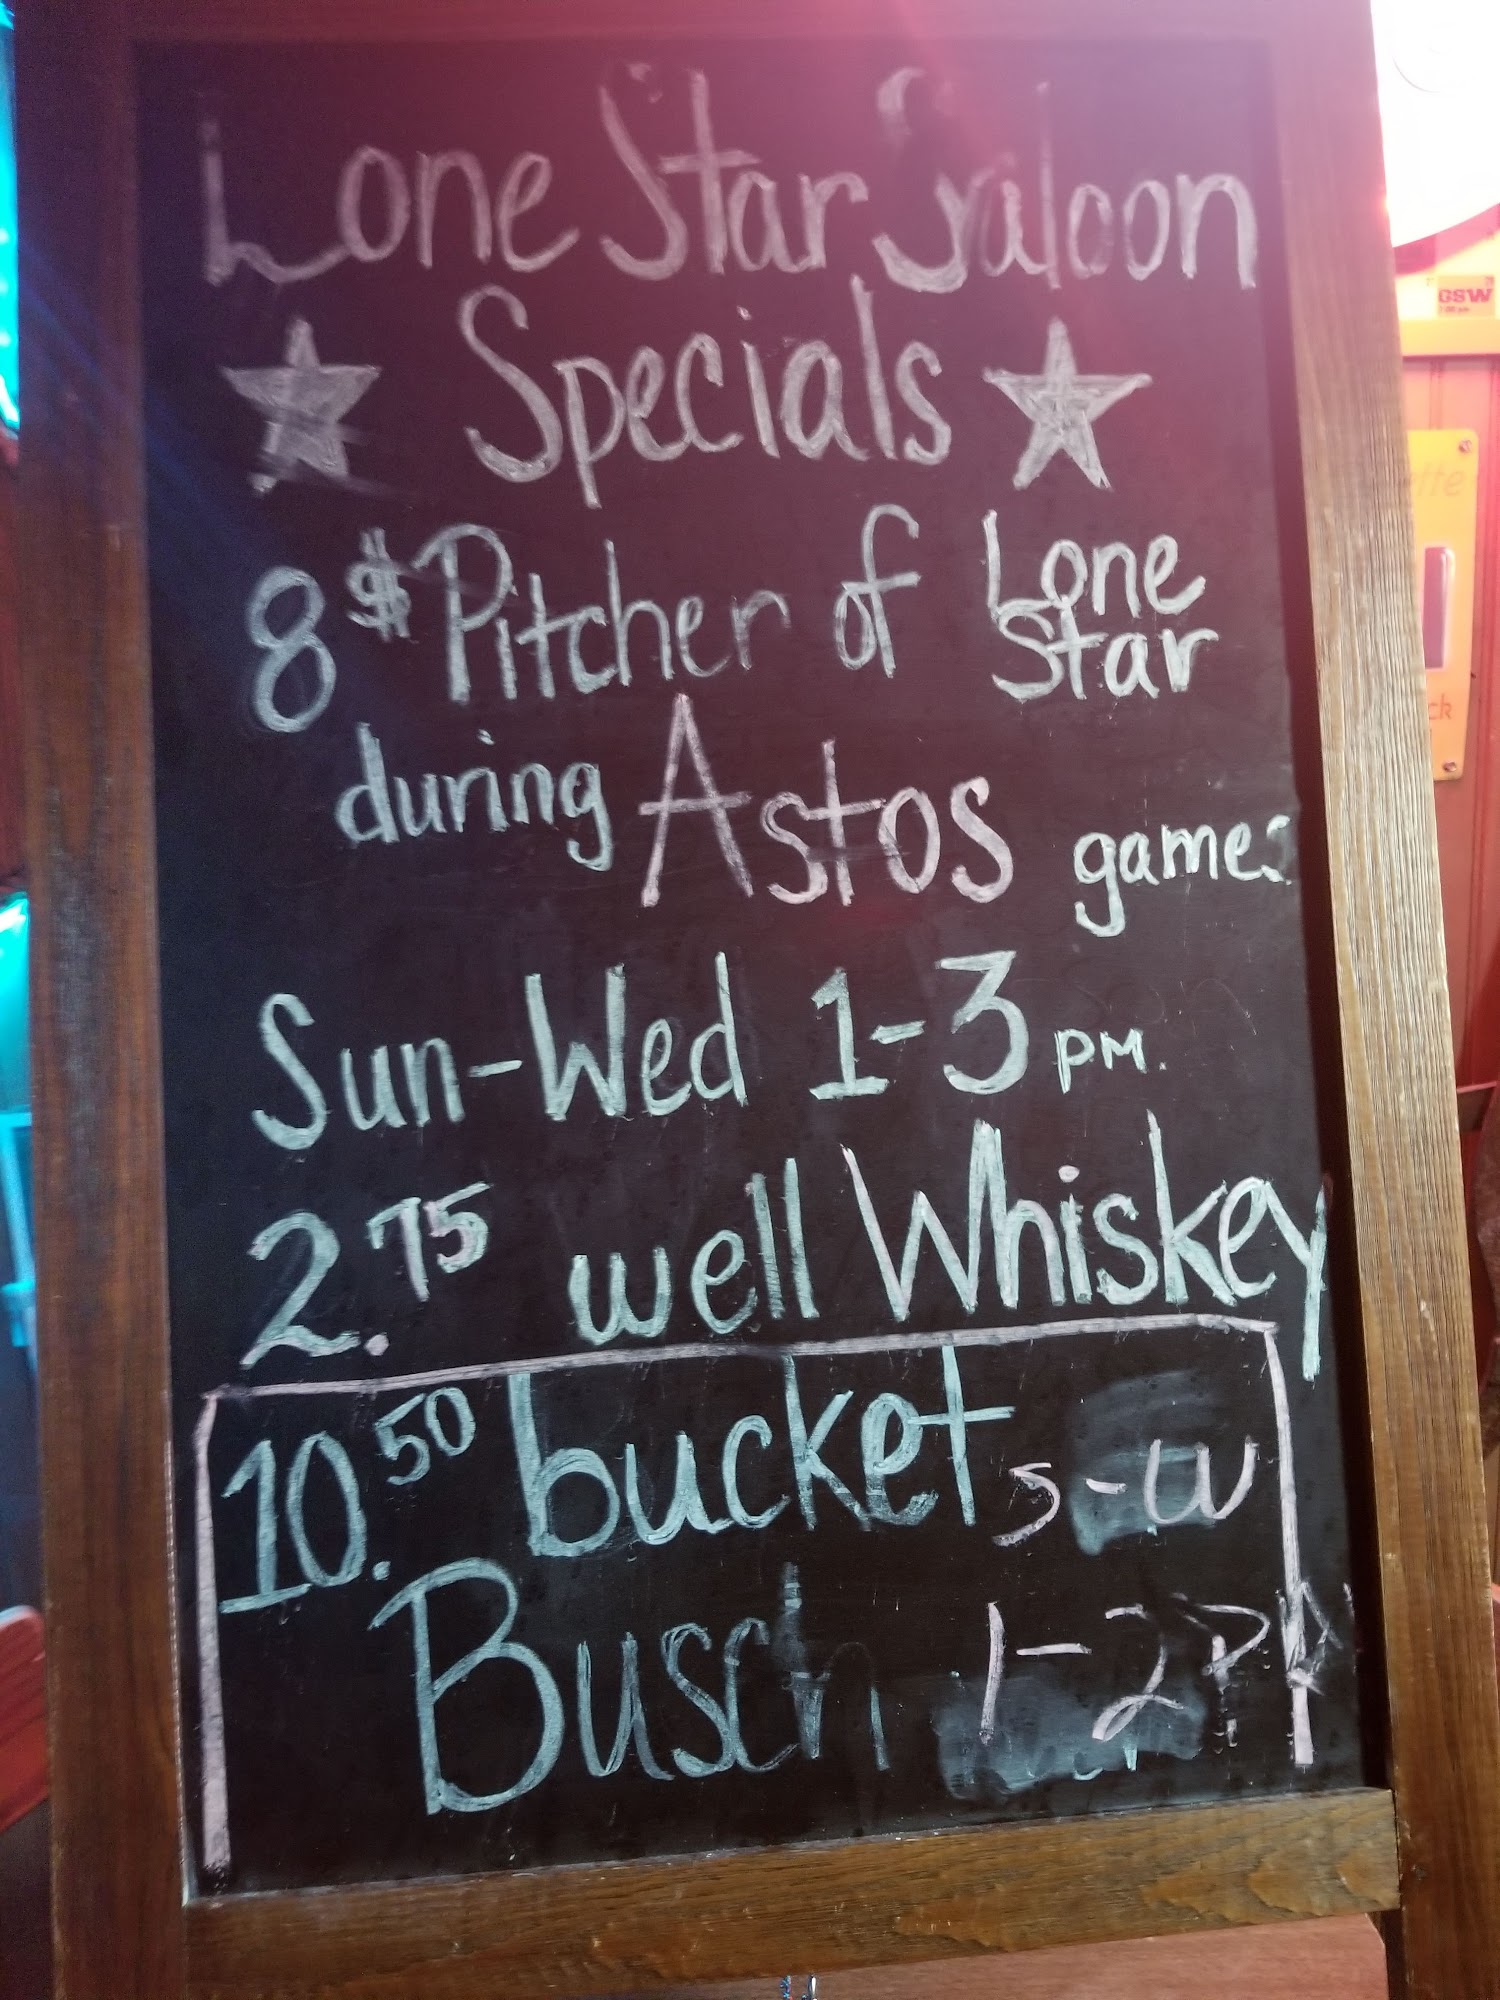 Lone Star Saloon
Specials
8$ Pitcher of Lone Star
during Astos games
Sun-Wed 1-3 PM.
2.75 well Whiskey
10.50 bucket S-W
Busch 1-2P
GSW